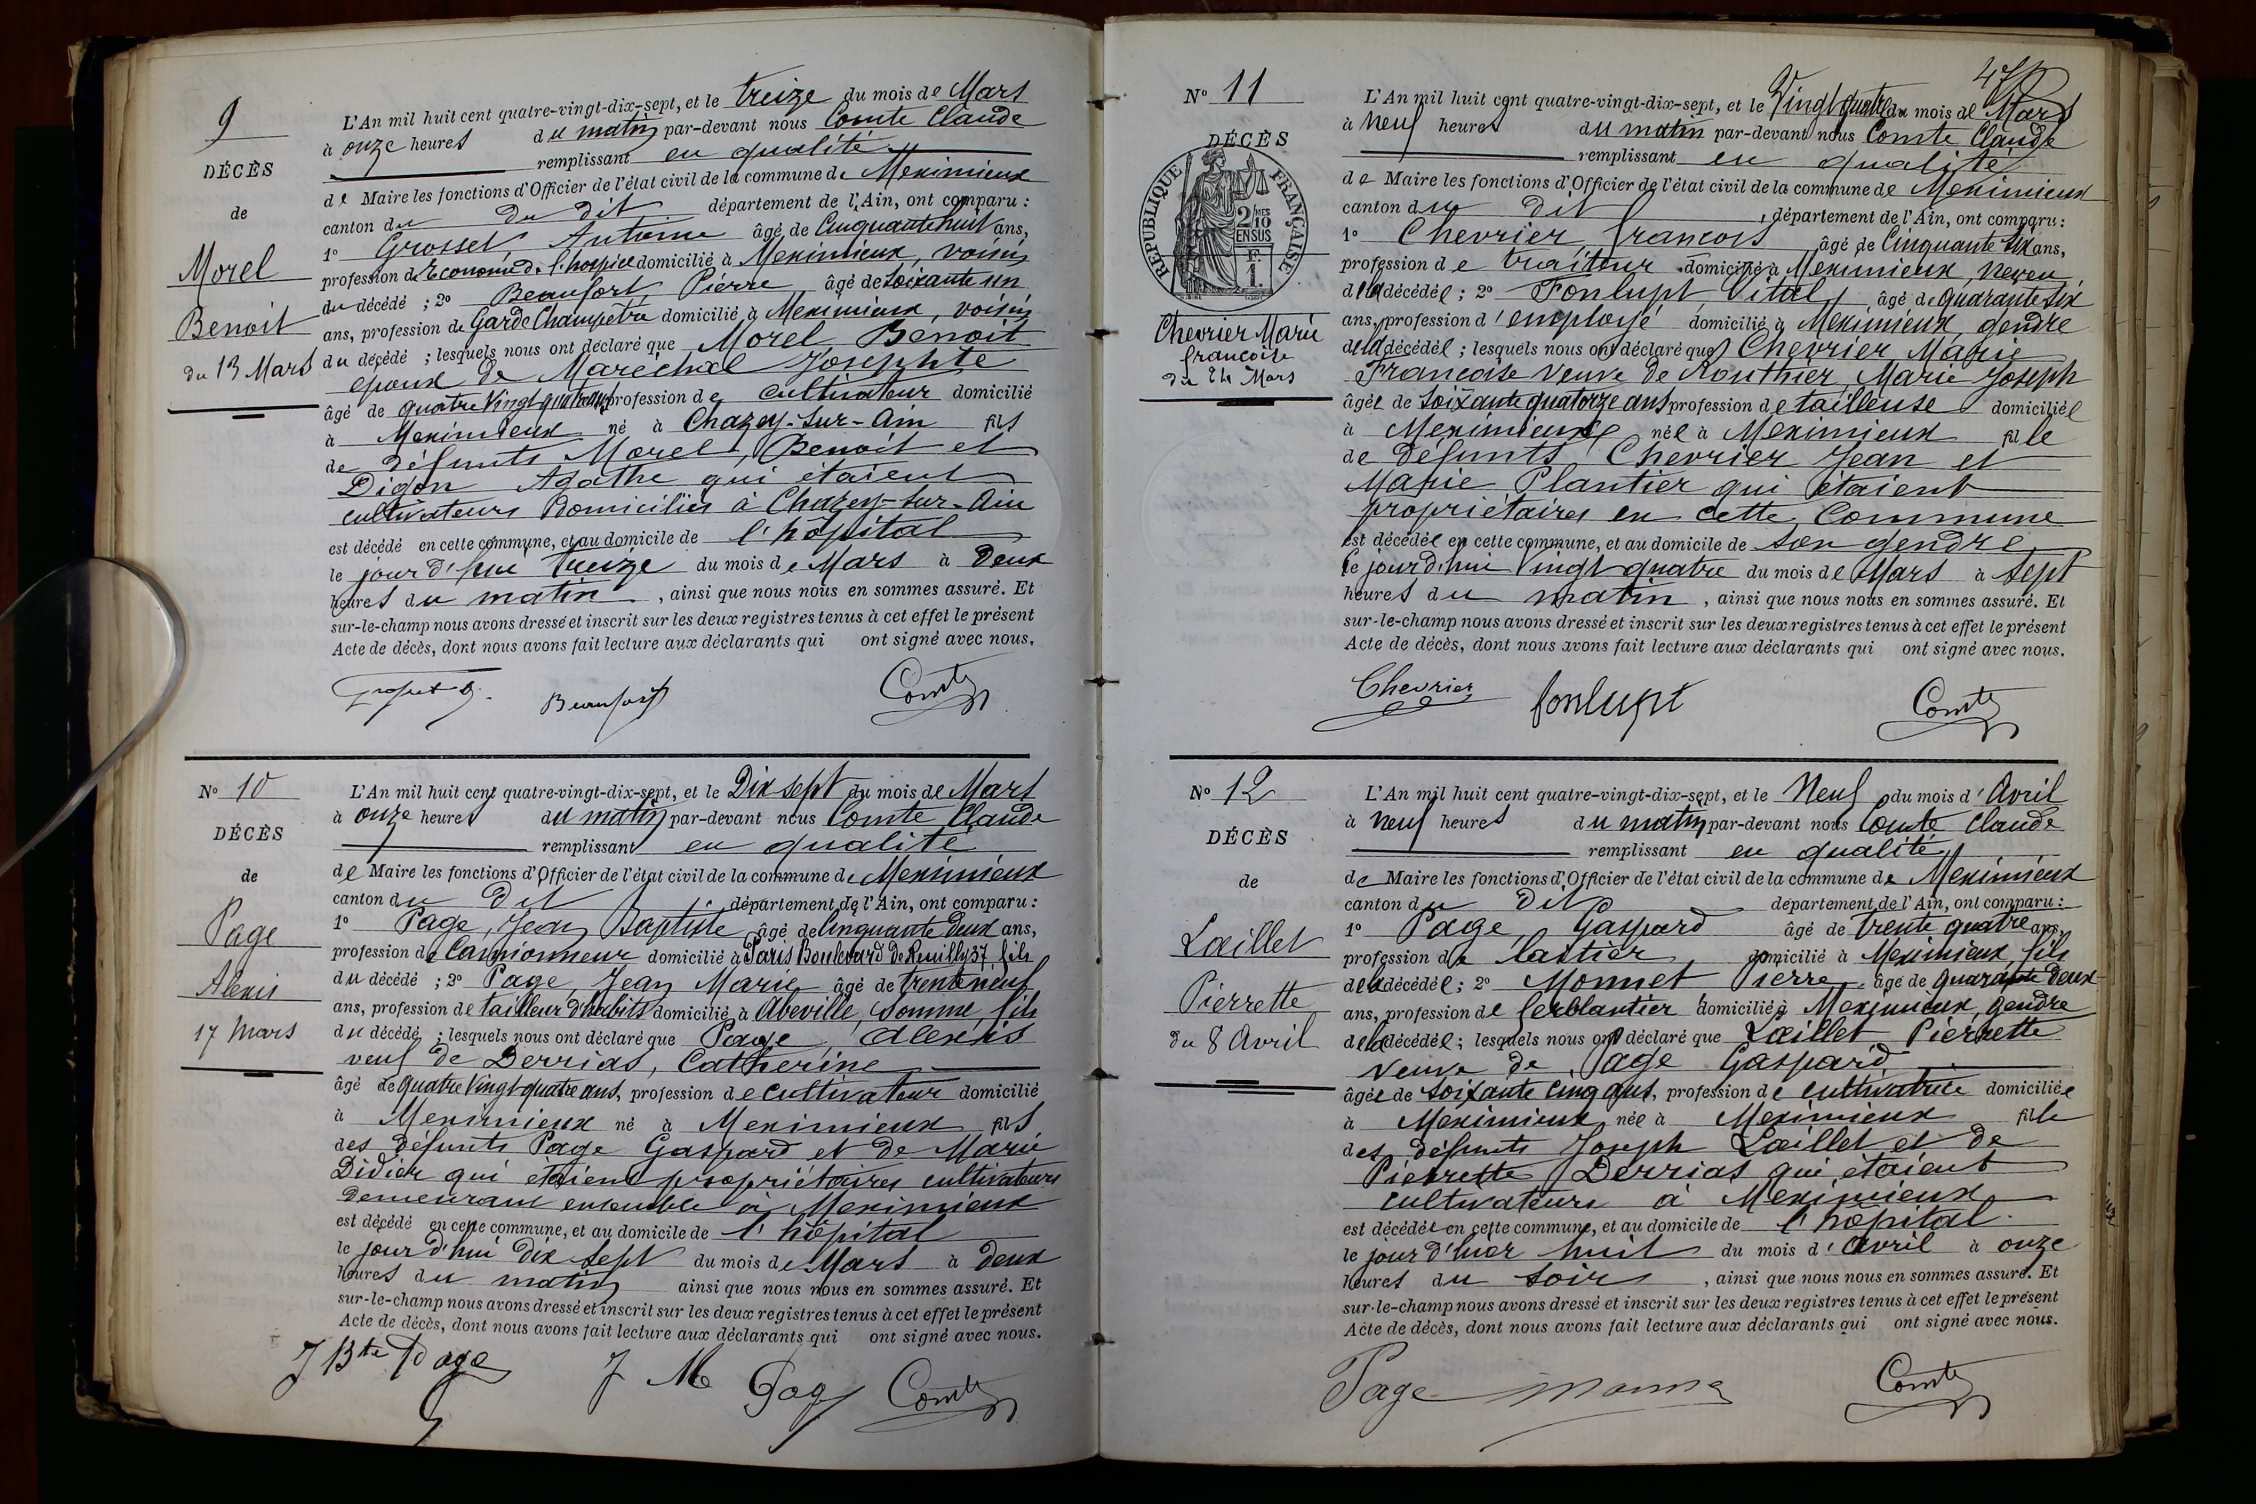 9
DÉCÈS
de
Morel
Benoit
du 13 Mars
L'An mil huit cent quatre-vingt-dix-sept, et le treize du mois de Mars
à onze heures du matin par-devant nous Comte Claude
remplissant en qualité
de Maire les fonctions d'Officier de l'état civil de la commune de Meximieux
canton du du dit département de l'Ain, ont comparu :
1° Grosset, Antoine âgé de Cinquante huit ans,
profession d'Econome de l'hospice domicilié à Meximieux, voisin
du décédé ; 2° Beaufort Pierre âgé de Soixante un
ans, profession de Garde Champêtre domicilié à Meximieux, voisin
du décédé ; lesquels nous ont déclaré que Morel Benoit
epoux de Maréchal Josephte
âgé de quatre Vingt quatre ans profession de cultivateur domicilié
à Meximieux né à Chazey-sur-Ain fils
de défunts Morel, Benoit et
Digon Agathe qui étaient
cultivateurs domiciliés à Chazey-sur-Ain
est décédé en cette commune, et au domicile de l'hôpital
le jour d'hui treize du mois de Mars à Deux
heures du matin, ainsi que nous nous en sommes assuré. Et
sur-le-champ nous avons dressé et inscrit sur les deux registres tenus à cet effet le présent
Acte de décès, dont nous avons fait lecture aux déclarants qui ont signé avec nous.
Beaufort Comte
N° 10
DÉCÈS
de
Page
Alexis
17 Mars
L'An mil huit cent quatre-vingt-dix-sept, et le Dix sept du mois de Mars
à onze heures du matin par-devant nous Comte Claude
remplissant en qualité
de Maire les fonctions d'Officier de l'état civil de la commune de Meximieux
canton du dit département de l'Ain, ont comparu :
1° Page, Jean Baptiste âgé de Cinquante Deux ans,
profession de Camionneur domicilié à Paris Boulevard De Reuilly 37 fils
du décédé ; 2° Page, Jean Marie âgé de trente neuf
ans, profession de tailleur d'habits domicilié à Abeville, Somme, fils
du décédé ; lesquels nous ont déclaré que Page, Alexis
veuf de Derrias, Catherine
âgé de quatre Vingt quatre ans, profession de cultivateur domicilié
à Meximieux né à Meximieux fils
des défunts Page Gaspard et de Marie
Didier qui étaient propriétaires cultivateurs
demeurant ensemble à Meximieux
est décédé en cette commune, et au domicile de l'hôpital
le jour d'hui dix sept du mois de Mars à deux
heures du matin ainsi que nous nous en sommes assuré. Et
sur-le-champ nous avons dressé et inscrit sur les deux registres tenus à cet effet le présent
Acte de décès, dont nous avons fait lecture aux déclarants qui ont signé avec nous.
J Bte Page J M Page Comte
47
N° 11
DÉCÈS
RÉPUBLIQUE FRANÇAISE
2 MES
10
EN SUS
F.
1.
Chevrier Marie
francoise
du 24 Mars
L'An mil huit cent quatre-vingt-dix-sept, et le Vingt quatre du mois de Mars
à Neuf heures du matin par-devant nous Comte Claude
remplissant en qualité
de Maire les fonctions d'Officier de l'état civil de la commune de Meximieux
canton du dit, département de l'Ain, ont comparu :
1° Chevrier, francois âgé de Cinquante six ans,
profession de traiteur domicilié à Meximieux, neveu
de la décédée ; 2° Fonlupt, Vital, âgé de quarante six
ans, profession d'employé domicilié à Meximieux, gendre
de la décédée ; lesquels nous ont déclaré que Chevrier, Marie
Francoise veuve de Routhier, Marie Joseph
âgée de soixante quatorze ans profession de tailleuse domiciliée
à Meximieux née à Meximieux fille
de défunts Chevrier Jean et
Marie Plantier qui étaient
propriétaires en cette Commune
est décédée en cette commune, et au domicile de son gendre
le jour d'hui Vingt quatre du mois de Mars à sept
heures du matin, ainsi que nous nous en sommes assuré. Et
sur-le-champ nous avons dressé et inscrit sur les deux registres tenus à cet effet le présent
Acte de décès, dont nous avons fait lecture aux déclarants qui ont signé avec nous.
Chevrier fonlupt Comte
N° 12
DÉCÈS
de
Lœillet
Pierrette
du 8 Avril
L'An mil huit cent quatre-vingt-dix-sept, et le Neuf du mois d'Avril
à neuf heures du matin par-devant nous Comte Claude
remplissant en qualité
de Maire les fonctions d'Officier de l'état civil de la commune de Meximieux
canton du dit département de l'Ain, ont comparu :
1° Page, Gaspard âgé de trente quatre ans,
profession de laitier, domicilié à Meximieux, fils
de la décédée ; 2° Monnet Pierre, âgé de quarante deux
ans, profession de ferblantier domicilié à Meximieux, gendre
de la décédée ; lesquels nous ont déclaré que Lœillet Pierrette
veuve de Page Gaspard
âgée de soixante cinq ans, profession de cultivatrice domiciliée
à Meximieux née à Meximieux fille
des défunts Joseph Lœillet et de
Pierrette Derrias qui étaient
cultivateurs à Meximieux
est décédée en cette commune, et au domicile de l'hôpital.
le jour d'hier huit du mois d'Avril à onze
heures du soir, ainsi que nous nous en sommes assuré. Et
sur-le-champ nous avons dressé et inscrit sur les deux registres tenus à cet effet le présent
Acte de décès, dont nous avons fait lecture aux déclarants qui ont signé avec nous.
Page Comte